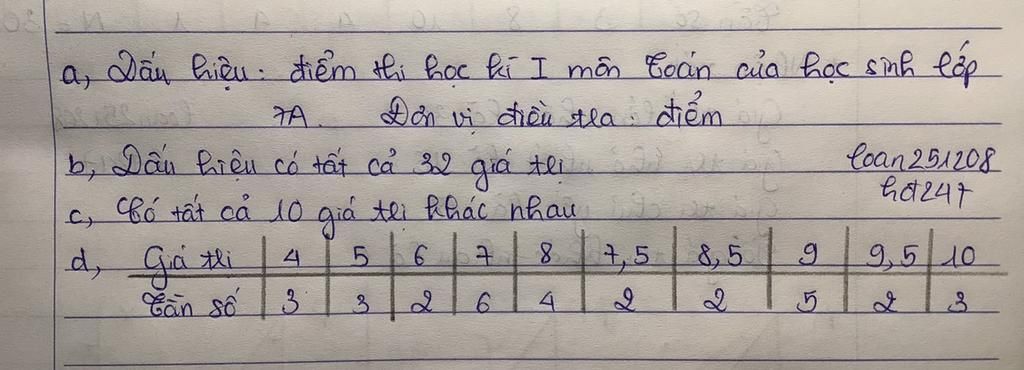 a, Dấu hiệu: điểm thi học kì I môn Toán của học sinh lớp
7A. Đơn vị điều tra: điểm
b, Dấu hiệu có tất cả 32 giá trị
loan251208
hd247
c, Có tất cả 10 giá trị khác nhau
d, Giá trị 4 5 6 7 8 7,5 8,5 9 9,5 10
Tần số 3 3 2 6 4 2 2 5 2 3